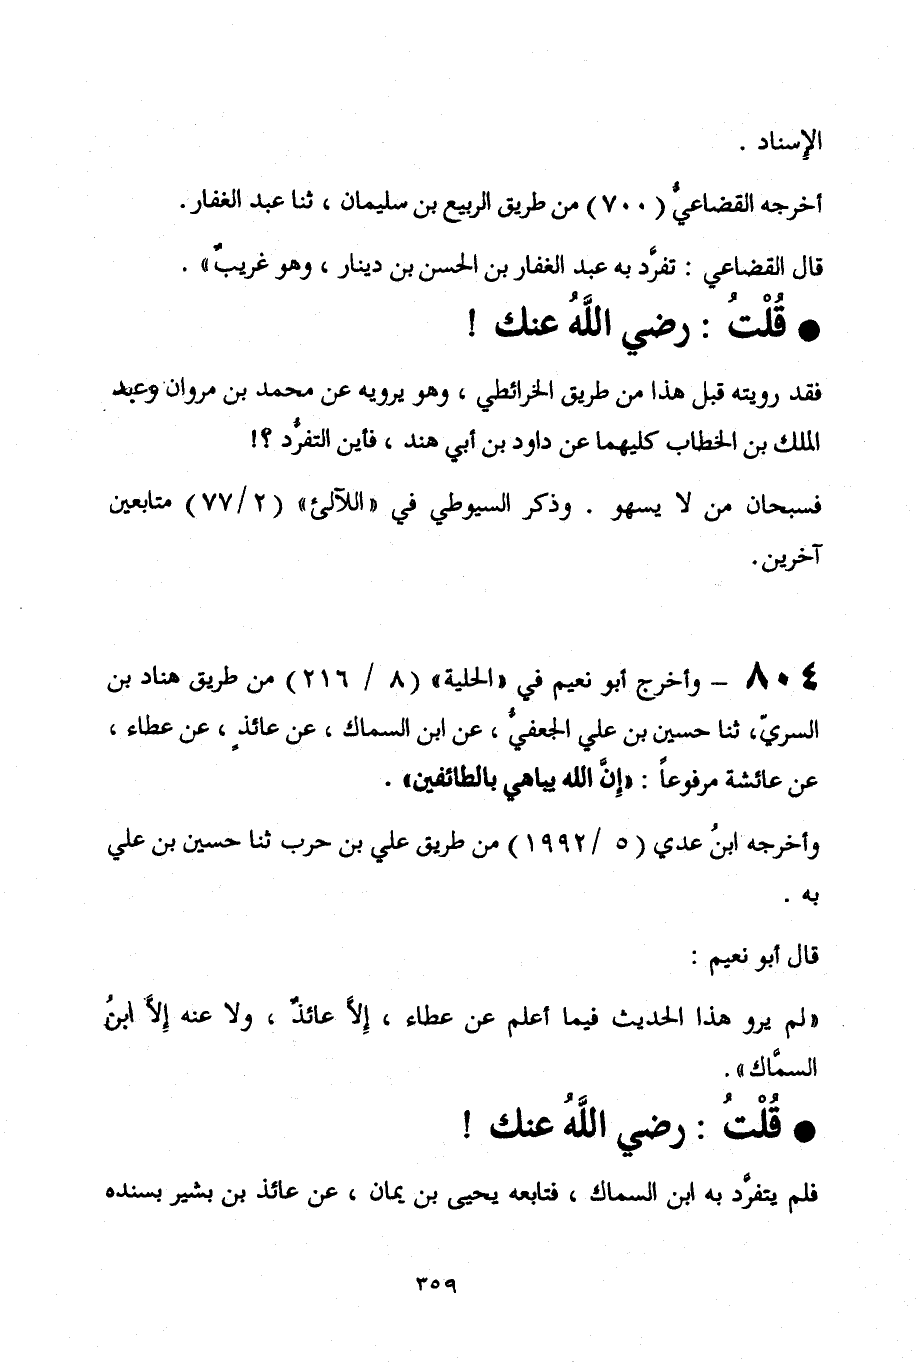 الإسناد .
أخرجه القضاعيُّ (٧٠٠) من طريق الربيع بن سليمان ، ثنا عبد الغفار.
قال القضاعي : تفرَّد به عبد الغفار بن الحسن بن دينار ، وهو غريبٌ» .
● قُلْتُ : رضي اللَّهُ عنك !
فقد رويته قبل هذا من طريق الخرائطي ، وهو يرويه عن محمد بن مروان وعبد
الملك بن الخطاب كليهما عن داود بن أبي هند ، فأين التفرُّد ؟!
فسبحان من لا يسهو . وذكر السيوطي في «اللآلئ» (٧٧/٢) متابعين
آخرين.
٨٠٤ – وأخرج أبو نعيم في «الحلية» (٨ / ٢١٦) من طريق هناد بن
السريّ، ثنا حسين بن علي الجعفيُّ ، عن ابن السماك ، عن عائذٍ ، عن عطاء ،
عن عائشة مرفوعاً : «إنَّ الله يباهي بالطائفين» .
وأخرجه ابنُ عدي (٥ /١٩٩٢) من طريق علي بن حرب ثنا حسين بن علي
به .
قال أبو نعيم :
«لم يرو هذا الحديث فيما أعلم عن عطاء ، إلاَّ عائذٌ ، ولا عنه إلاَّ ابنُ
السمَّاك» .
● قُلْتُ : رضي اللَّهُ عنك !
فلم يتفرَّد به ابن السماك ، فتابعه يحيى بن يمان ، عن عائذ بن بشير بسنده
٣٥٩